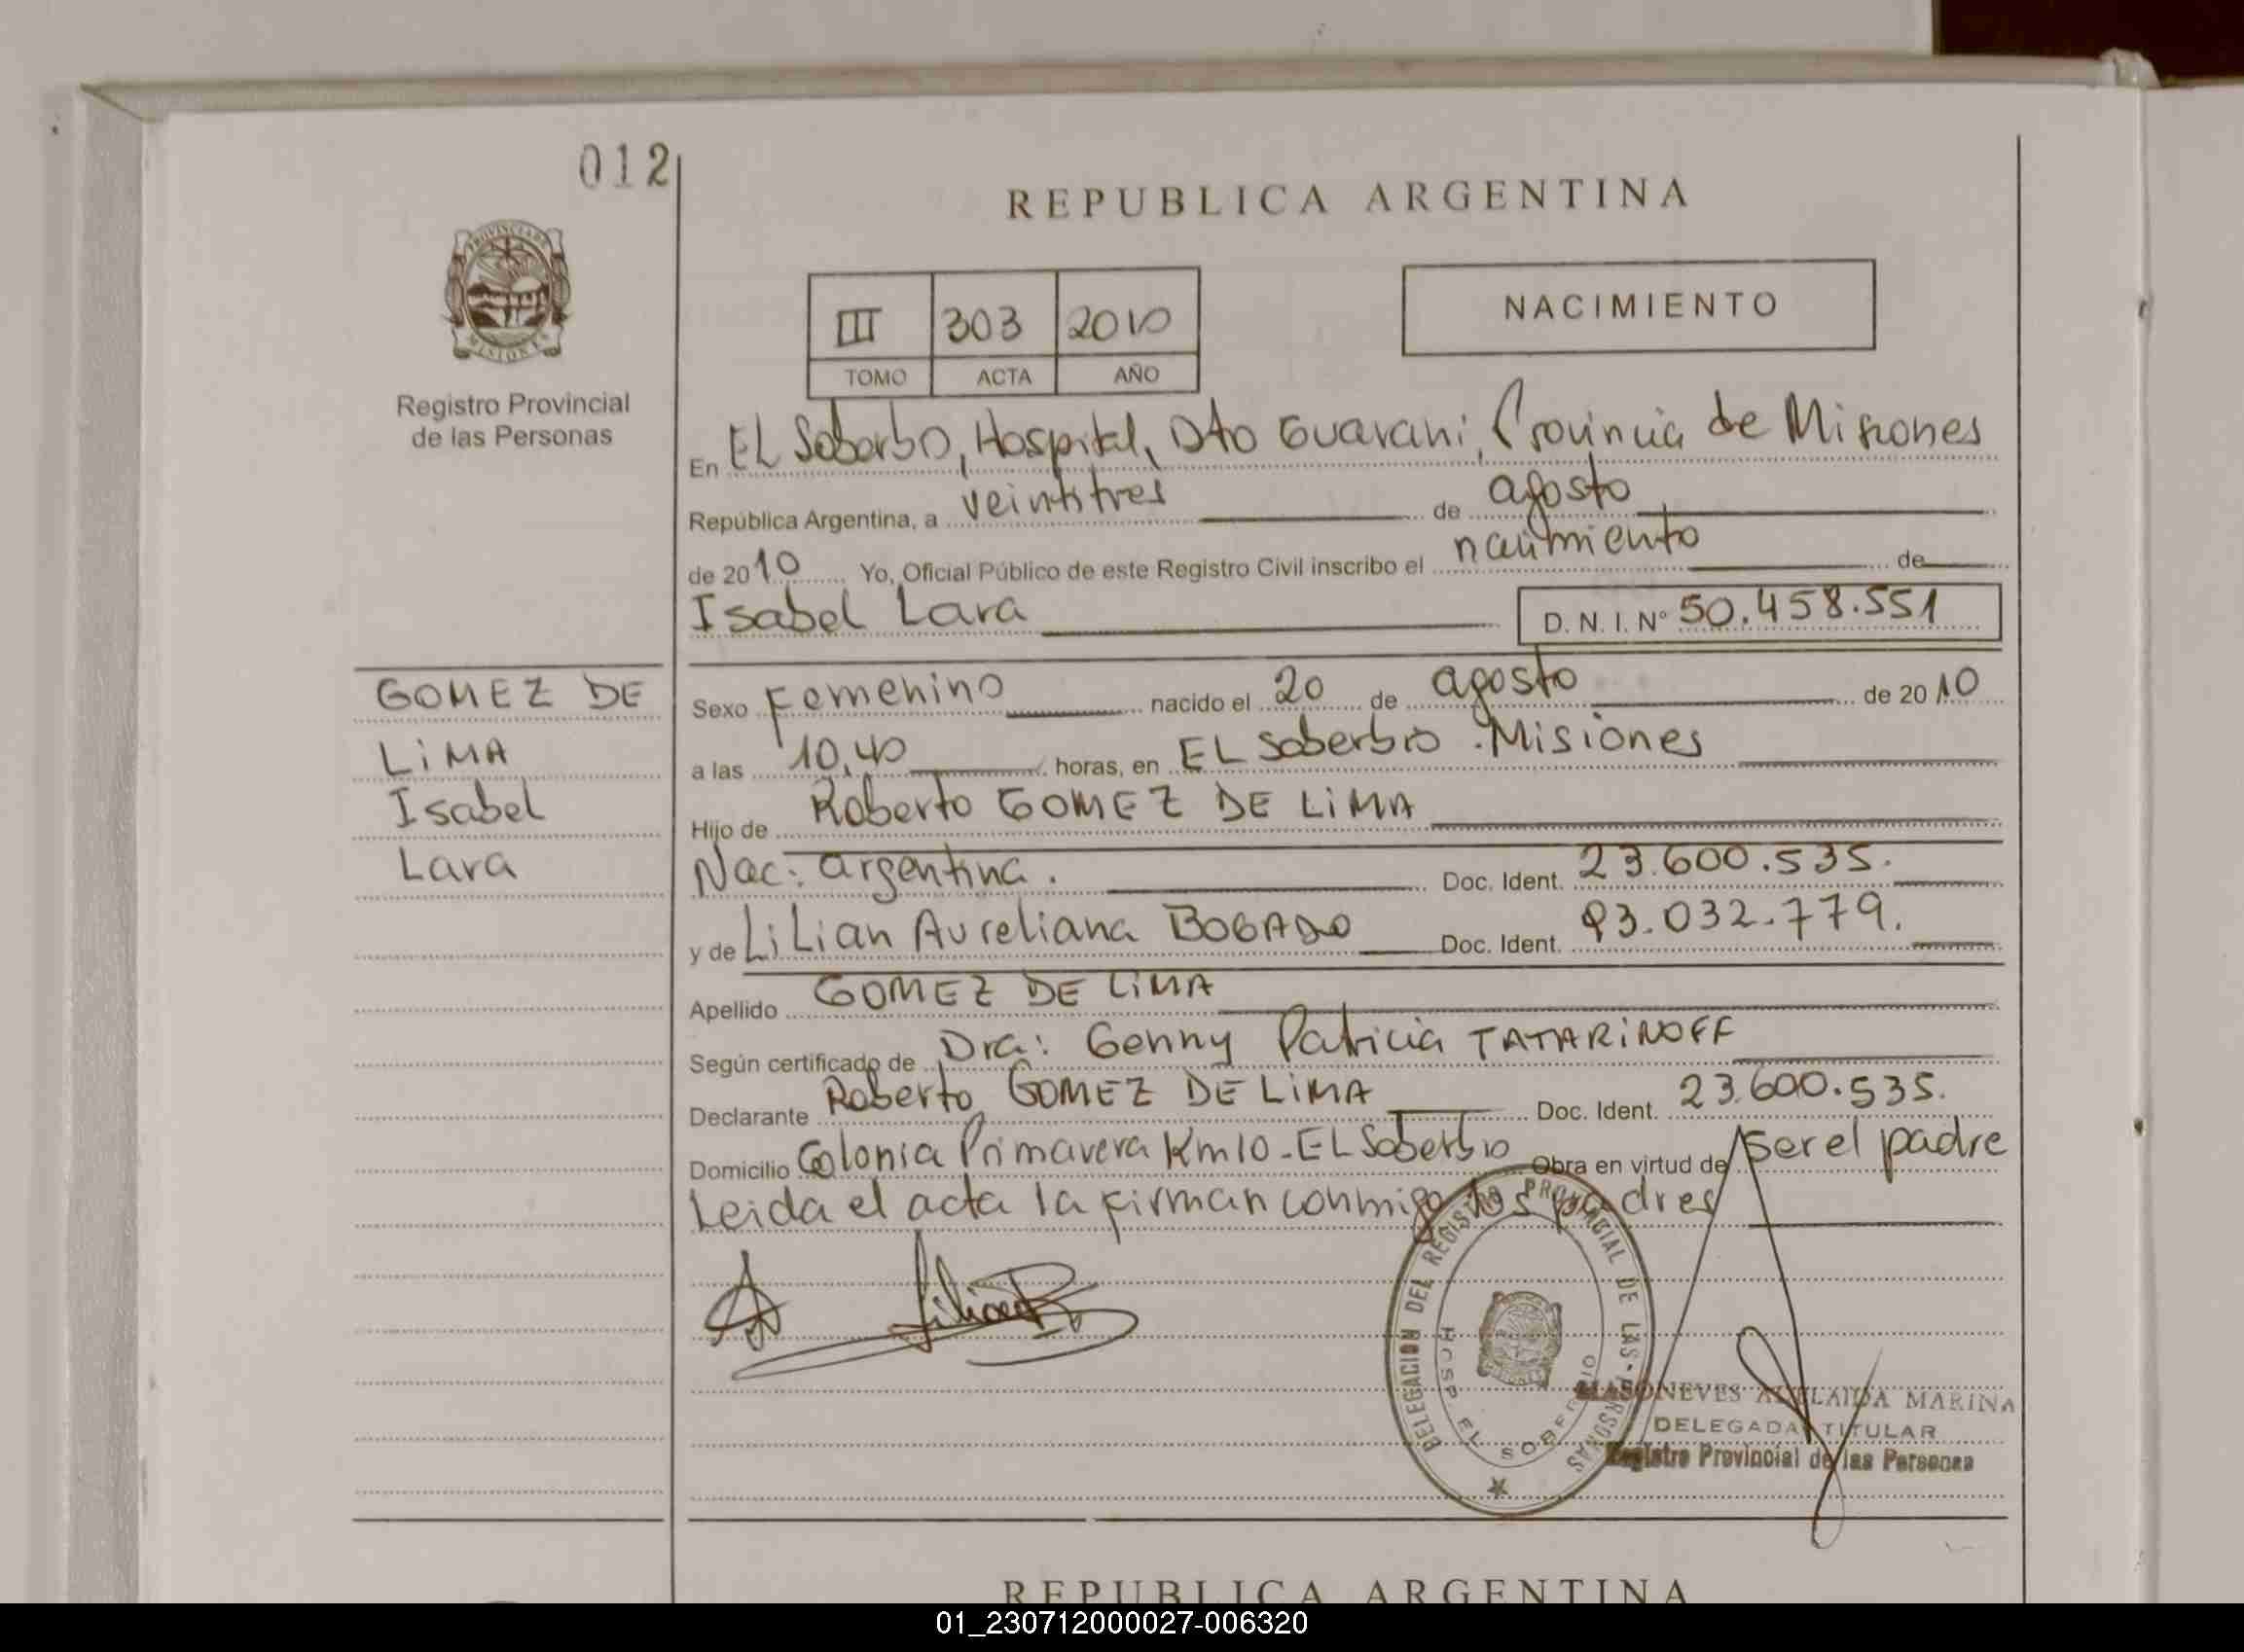 012
REPUBLICA ARGENTINA
PROVINCIA DE
MISIONES
Registro Provincial
de las Personas
III 303 2010
TOMO ACTA AÑO
NACIMIENTO
En EL Soberbo, Hospital, Dto Guarani, Provincia de Misiones
República Argentina, a veintitres de agosto
de 2010 Yo, Oficial Público de este Registro Civil inscribo el nacimiento de
Isabel Lara D. N. I. Nº 50.458.551
GOMEZ DE
LiMA
Isabel
Lara
Sexo Femenino nacido el 20 de agosto de 2010
a las 10,40 horas, en EL Soberbio . Misiones
Hijo de Roberto GOMEZ DE LiMA
Nac: argentina. Doc. Ident. 23.600.535.
y de LiLian Aureliana BOGADO Doc. Ident. 93.032.779.
Apellido GOMEZ DE LiMA
Según certificado de Dra: Genny Patricia TATARiNOFF
Declarante Roberto GOMEZ DE LiMA Doc. Ident. 23.600.535.
Domicilio Colonia Primavera Km10 - EL Soberbio Obra en virtud de ser el padre
Leida el acta la firman conmigo los padres
DELEGACION DEL REGISTRO PROVINCIAL DE LAS PERSONAS
HOSP. EL SOBERBIO
MARINA
DELEGADA TITULAR
Registro Provincial de las Personas
REPUBLICA ARGENTINA
01_230712000027-006320